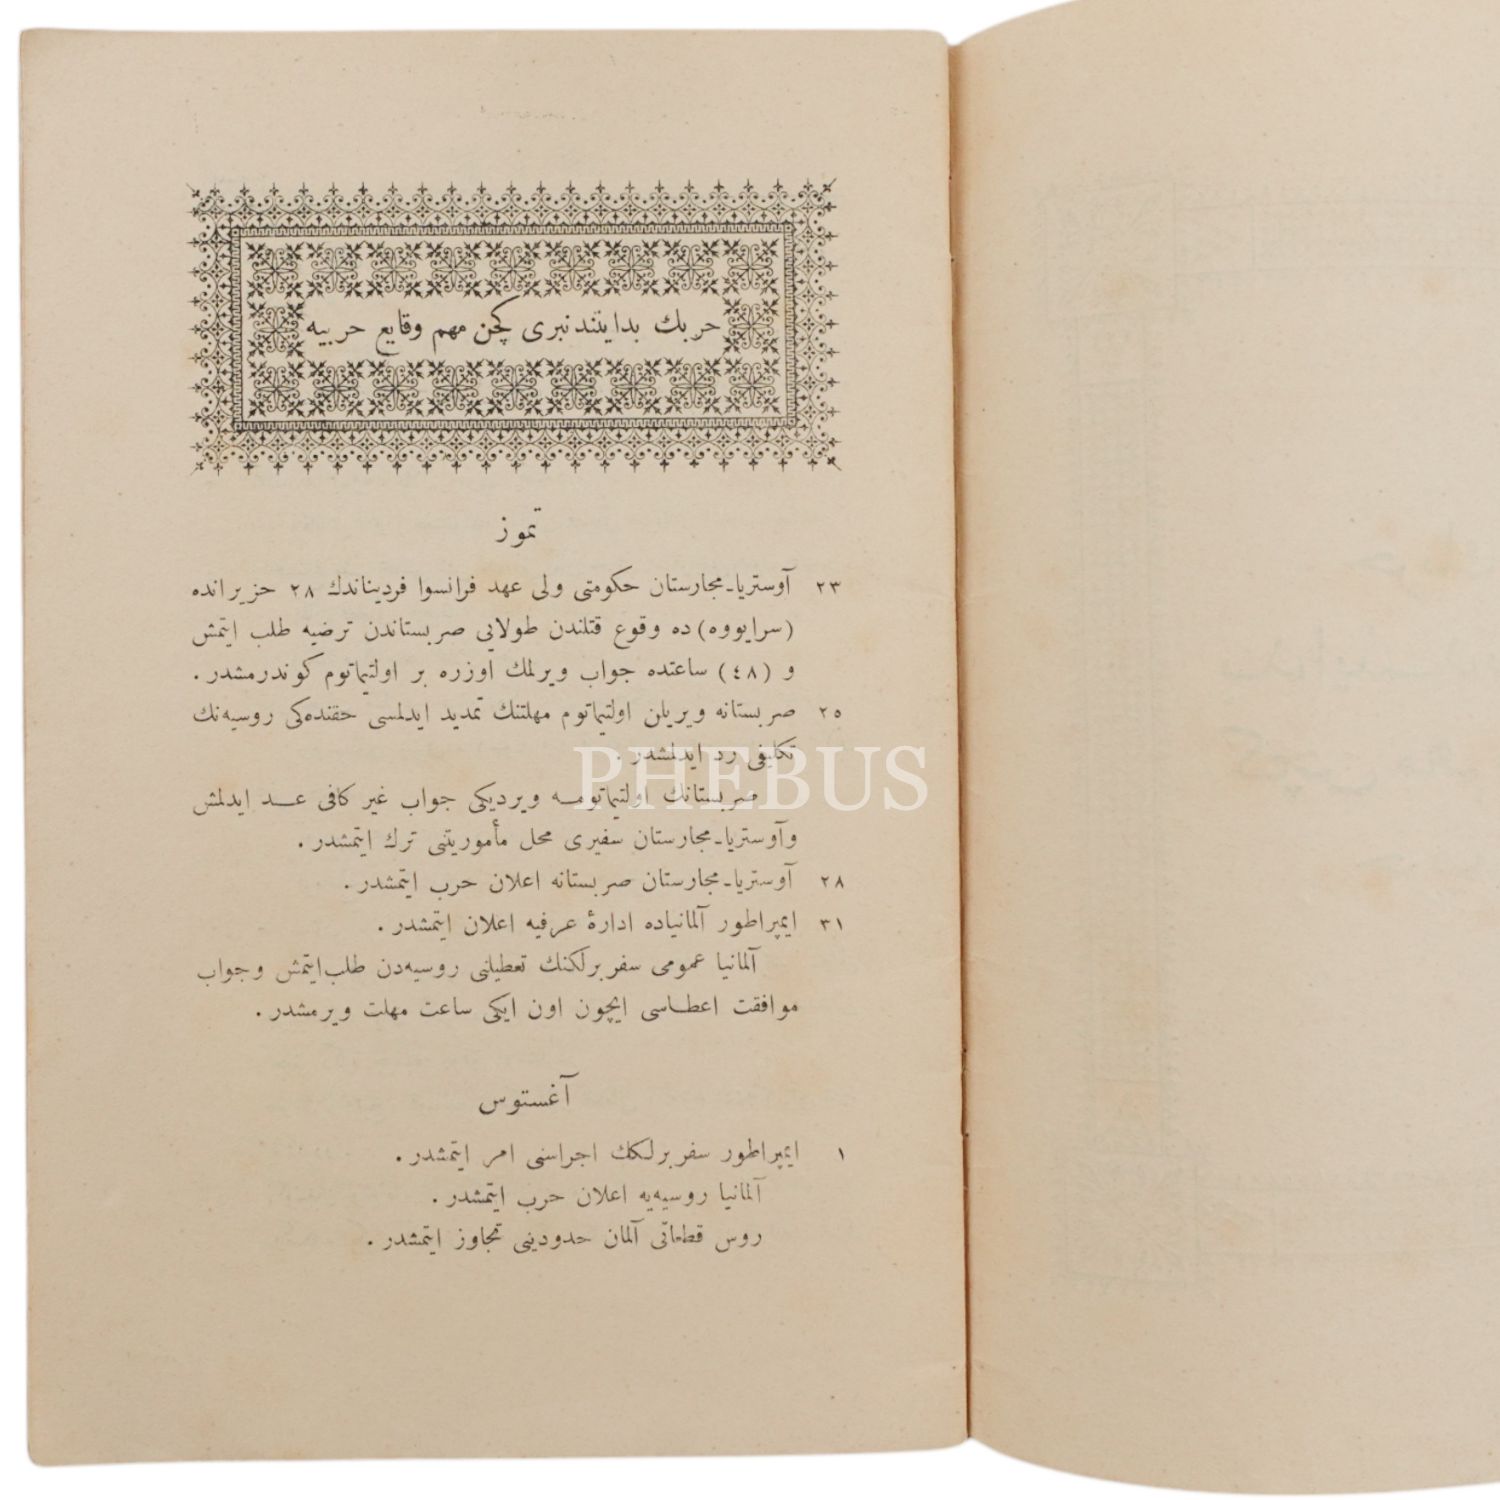 حربك بدايتندنبرى كچن مهم وقايع حربيه
تموز
٢٣ آوستريا-مجارستان حكومتى ولى عهد فرانسوا فرديناندك ٢٨ حزيرانده
(سرايووه) ده وقوع قتلندن طولايى صربستاندن ترضيه طلب ايتمش
و (٤٨) ساعتده جواب ويرلمك اوزره بر اولتيماتوم كوندرمشدر.
٢٥ صربستانه ويريلن اولتيماتوم مهلتنك تمديد ايدلمسى حقنده‌كى روسيه‌نك
تكليفى رد ايدلمشدر.
صربستانك اولتيماتومه ويرديكى جواب غير كافى عد ايدلمش
وآوستريا-مجارستان سفيرى محل مأموريتنى ترك ايتمشدر.
٢٨ آوستريا-مجارستان صربستانه اعلان حرب ايتمشدر.
٣١ ايمپراطور آلمانياده ادارهٔ عرفيه اعلان ايتمشدر.
آلمانيا عمومى سفربرلكنك تعطيلنى روسيه‌دن طلب ايتمش وجواب
موافقت اعطاسى ايچون اون ايكى ساعت مهلت ويرمشدر.
آغستوس
١ ايمپراطور سفربرلكك اجراسنى امر ايتمشدر.
آلمانيا روسيه‌يه اعلان حرب ايتمشدر.
روس قطعاتى آلمان حدودينى تجاوز ايتمشدر.
PHEBUS